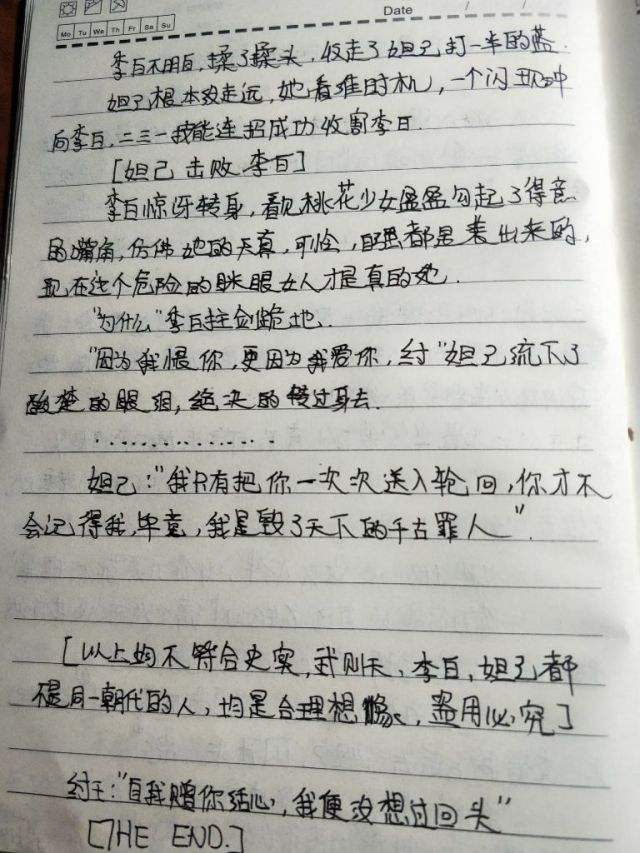 Mo Tu We Th Fr Sa Su
Date / /
李白不明白,揉了揉头,收走了妲己打一半的蓝.
妲己根本没走远,她看准时机,一个闪现冲
向李白,二三一技能连招成功收割李白.
[妲己 击败 李白]
李白惊讶转身,看见桃花少女盈盈勾起了得意
的嘴角,仿佛她的天真,可怜,呆萌都是装出来的,
现在这个危险的眯眼女人才是真的她.
"为什么"李白拄剑跪地.
"因为我恨你,更因为我爱你,纣"妲己流下了
酸楚的眼泪,绝决的转过身去.
..............
妲己:"我只有把你一次次送入轮回,你才不
会记得我,毕竟,我是毁了天下的千古罪人".
[以上均不符合史实,武则天、李白,妲己都
不是同一朝代的人,均是合理想像,盗用必究]
纣王:"自我赠你结心,我便没想过回头"
[THE END.]